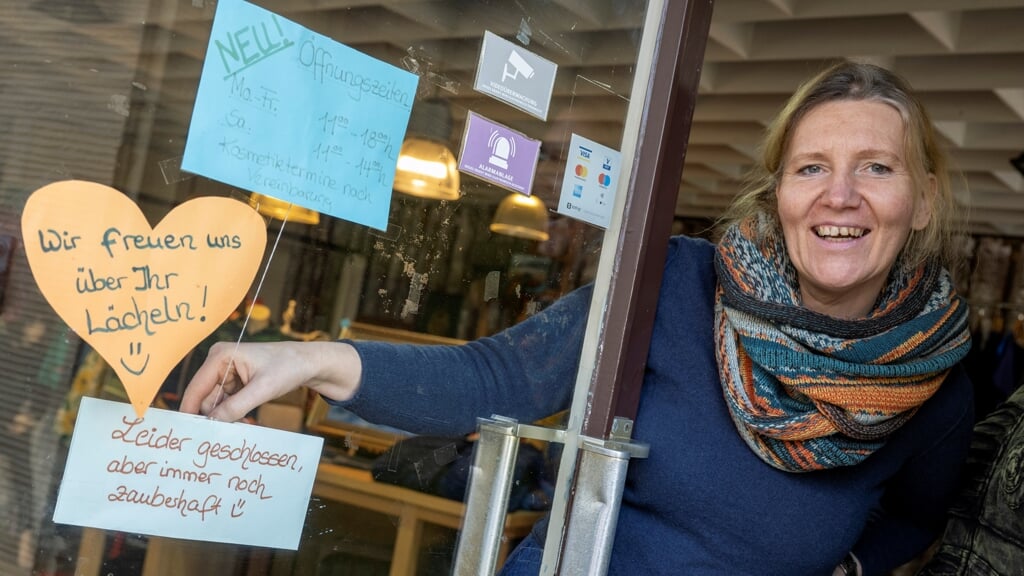 NEU!
Öffnungszeiten
Mo.-Fr. 11⁰⁰ - 18⁰⁰h
Sa. 11⁰⁰ - 14⁰⁰h
Kosmetiktermine nach
Vereinbarung
VIDEOÜBERWACHUNG
ALARMANLAGE
VISA
Wir freuen uns
über Ihr
Lächeln!
Leider geschlossen,
aber immer noch
zauberhaft